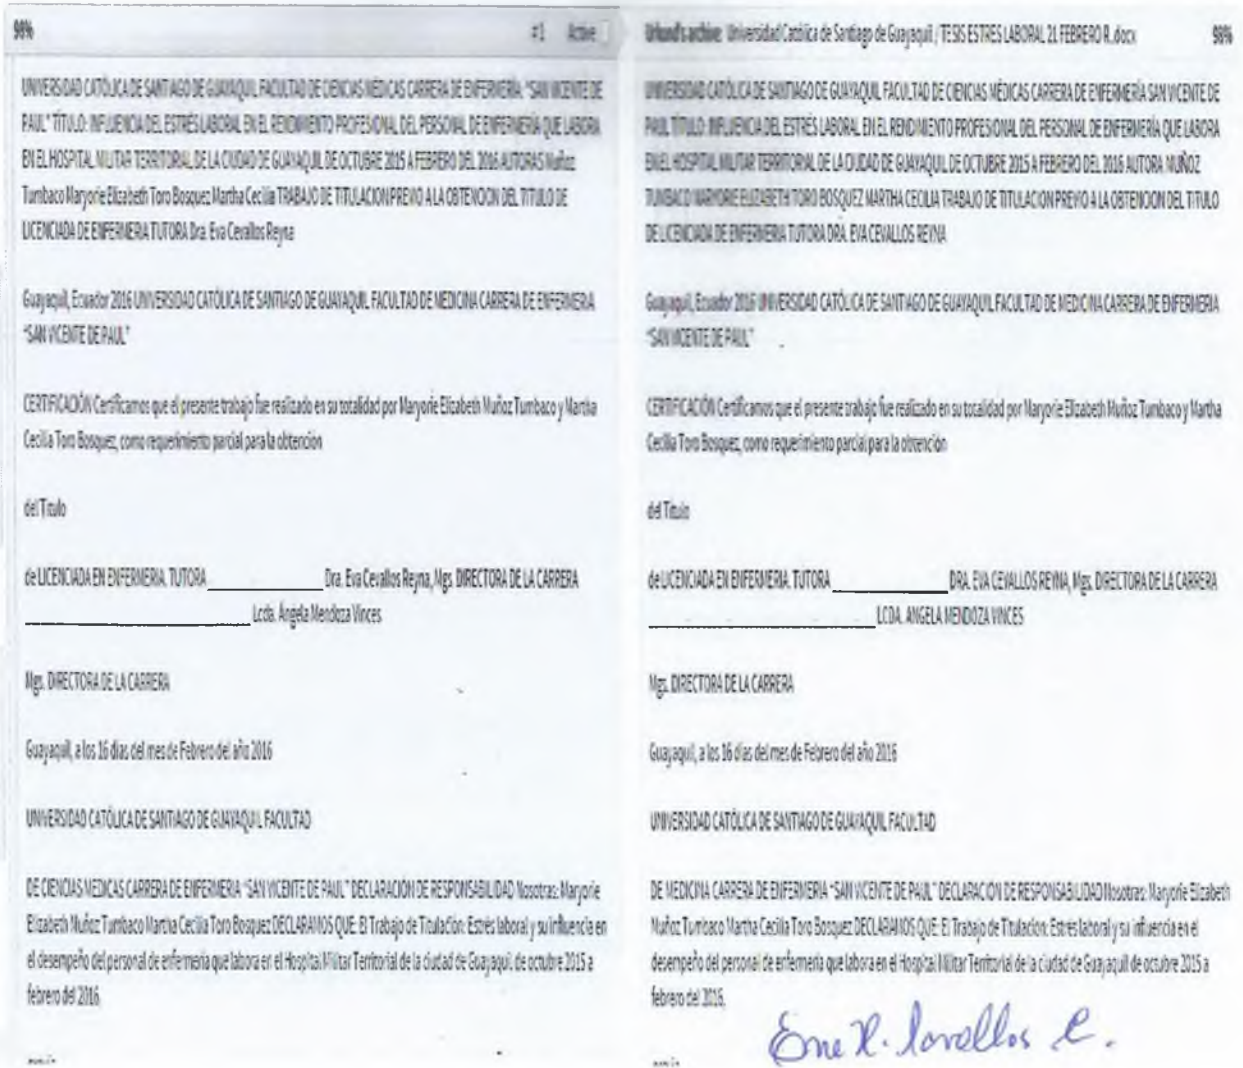 98%
#1 Active
UNIVERSIDAD CATÓLICA DE SANTIAGO DE GUAYAQUIL FACULTAD DE CIENCIAS MÉDICAS CARRERA DE ENFERMERIA "SAN VICENTE DE
PAUL" TÍTULO: INFLUENCIA DEL ESTRÉS LABORAL EN EL RENDIMIENTO PROFESIONAL DEL PERSONAL DE ENFERMERÍA QUE LABORA
EN EL HOSPITAL MILITAR TERRITORIAL DE LA CIUDAD DE GUAYAQUIL DE OCTUBRE 2015 A FEBRERO DEL 2016 AUTORAS Muñoz
Tumbaco Maryorie Elizabeth Toro Bosquez Martha Cecilia TRABAJO DE TITULACION PREVIO A LA OBTENCION DEL TITULO DE
LICENCIADA DE ENFERMERIA TUTORA Dra. Eva Cevallos Reyna
Guayaquil, Ecuador 2016 UNIVERSIDAD CATÓLICA DE SANTIAGO DE GUAYAQUIL FACULTAD DE MEDICINA CARRERA DE ENFERMERIA
"SAN VICENTE DE PAUL"
CERTIFICACIÓN Certificamos que el presente trabajo fue realizado en su totalidad por Maryorie Elizabeth Muñoz Tumbaco y Martha
Cecilia Toro Bosquez, como requerimiento parcial para la obtención
del Titulo
de LICENCIADA EN ENFERMERIA. TUTORA ____________ Dra. Eva Cevallos Reyna, Mgs. DIRECTORA DE LA CARRERA
________________________ Lcda. Ángela Mendoza Vinces
Mgs. DIRECTORA DE LA CARRERA
Guayaquil, a los 16 días del mes de Febrero del año 2016
UNIVERSIDAD CATÓLICA DE SANTIAGO DE GUAYAQUIL FACULTAD
DE CIENCIAS MEDICAS CARRERA DE ENFERMERIA "SAN VICENTE DE PAUL" DECLARACIÓN DE RESPONSABILIDAD Nosotras: Maryorie
Elizabeth Muñoz Tumbaco Martha Cecilia Toro Bosquez DECLARAMOS QUE: El Trabajo de Titulación: Estrés laboral y su influencia en
el desempeño del personal de enfermería que labora en el Hospital Militar Territorial de la ciudad de Guayaquil de octubre 2015 a
febrero del 2016.
Urkund's archive: Universidad Católica de Santiago de Guayaquil / TESIS ESTRES LABORAL 21 FEBRERO R..docx 98%
UNIVERSIDAD CATÓLICA DE SANTIAGO DE GUAYAQUIL FACULTAD DE CIENCIAS MÉDICAS CARRERA DE ENFERMERÍA SAN VICENTE DE
PAUL TÍTULO: INFLUENCIA DEL ESTRÉS LABORAL EN EL RENDIMIENTO PROFESIONAL DEL PERSONAL DE ENFERMERÍA QUE LABORA
EN EL HOSPITAL MILITAR TERRITORIAL DE LA CIUDAD DE GUAYAQUIL DE OCTUBRE 2015 A FEBRERO DEL 2016 AUTORA MUÑOZ
TUMBACO MARYORIE ELIZABETH TORO BOSQUEZ MARTHA CECILIA TRABAJO DE TITULACION PREVIO A LA OBTENCION DEL TITULO
DE LICENCIADA DE ENFERMERIA TUTORA DRA. EVA CEVALLOS REYNA
Guayaquil, Ecuador 2016 UNIVERSIDAD CATÓLICA DE SANTIAGO DE GUAYAQUIL FACULTAD DE MEDICINA CARRERA DE ENFERMERIA
"SAN VICENTE DE PAUL"
CERTIFICACIÓN Certificamos que el presente trabajo fue realizado en su totalidad por Maryorie Elizabeth Muñoz Tumbaco y Martha
Cecilia Toro Bosquez, como requerimiento parcial para la obtención
del Titulo
de LICENCIADA EN ENFERMERIA. TUTORA ____________ DRA. EVA CEVALLOS REYNA, Mgs. DIRECTORA DE LA CARRERA
________________________ LCDA. ANGELA MENDOZA VINCES
Mgs. DIRECTORA DE LA CARRERA
Guayaquil, a los 16 días del mes de Febrero del año 2016
UNIVERSIDAD CATÓLICA DE SANTIAGO DE GUAYAQUIL FACULTAD
DE MEDICINA CARRERA DE ENFERMERIA "SAN VICENTE DE PAUL" DECLARACIÓN DE RESPONSABILIDAD Nosotras: Maryorie Elizabeth
Muñoz Tumbaco Martha Cecilia Toro Bosquez DECLARAMOS QUE: El Trabajo de Titulación: Estrés laboral y su influencia en el
desempeño del personal de enfermería que labora en el Hospital Militar Territorial de la ciudad de Guayaquil de octubre 2015 a
febrero del 2016.